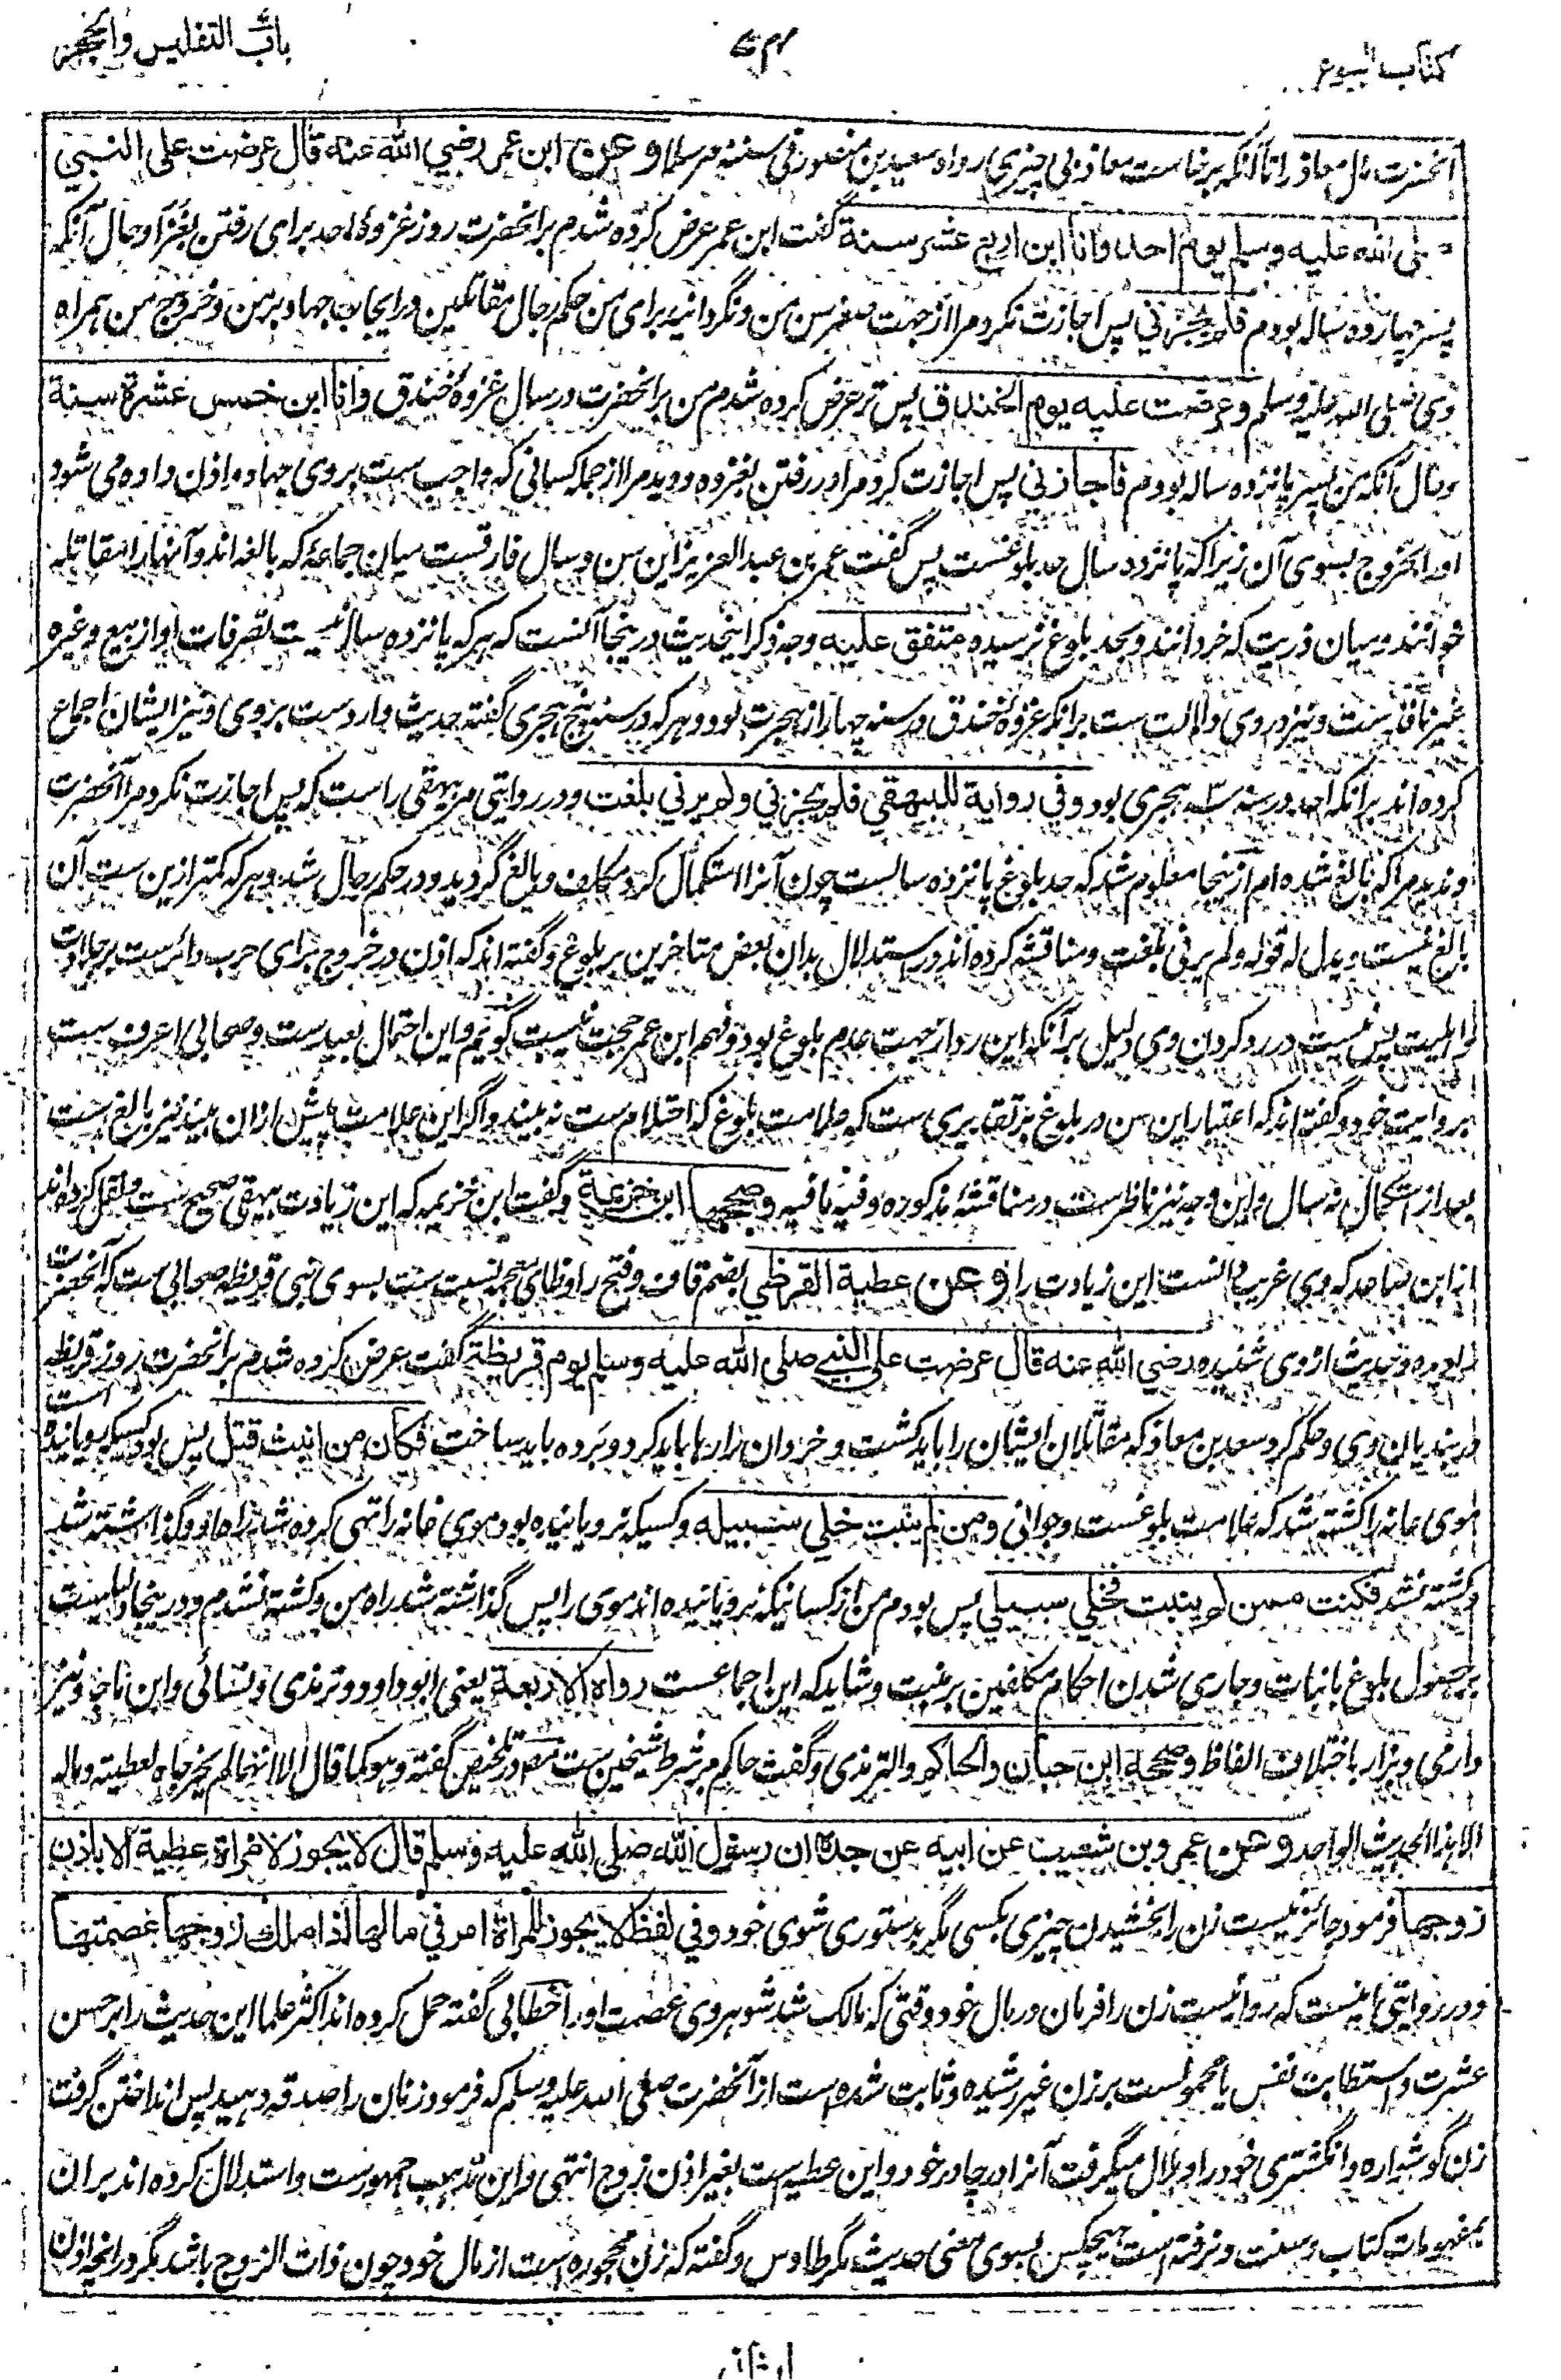 كتاب البيوع
باب التفليس والحجر
آنحضرت مال معاذ را تا آنکه برخاست معاذ بی چیزی رواه سعید بن منصور فی سننه مرسلا وعن ابن عمر رضي الله عنه قال عرضت على النبي
صلى الله عليه وسلم يوم احد وانا ابن اربع عشر سنة گفت ابن عمر عرض کرده شدم بر آنحضرت روز غزوهٔ احد برای رفتن بغزا و حال آنکه
پسر چهارده ساله بودم فلم يجزني پس اجازت نکرد مرا از جهت صغر سن من ونگردانید برای من حکم رجال مقاتلین در ایجاب جهاد بر من و خروج من همراه
وی صلی الله علیه وسلم وعرضت عليه يوم الخندق پس تر عرض کرده شدم من بر آنحضرت در سال غزوهٔ خندق وانا ابن خمس عشرة سنة
وحال آنکه من پسر پانزده ساله بودم فاجازني پس اجازت کرد مرا در رفتن بغزوه و دید مرا از جمله کسانی که واجب ست بروی جهاد و اذن داده می شود
او را بخروج بسوی آن زیرا که پانزده سال حد بلوغست پس گفت عمر بن عبد العزیز این سن و سال فارقست میان جماعهٔ که بالغ اند و آنها را مقاتله
خوانند و میان ذریت که خرد انند و بحد بلوغ نرسیده متفق عليه و وجه ذکر اینحدیث درینجا آنست که هر که پانزده سال نیست تصرفات او از بیع وغیره
غیر نافذ ست و نیز در وی دلالت ست بر آنکه غزوهٔ خندق در سنه چهار از هجرت بود و هر که در سنه پنج هجری گفته حدیث وارد ست بروی و نیز ایشان اجماع
کرده اند بر آنکه احد در سنه سه هجری بود وفي رواية للبيهقي فلم يجزني ولم يرني بلغت و در روایتی مر بیهقی راست که پس اجازت نکرد مرا آنحضرت
وندید مرا که بالغ شده ام از ینجا معلوم شد که حد بلوغ پانزده سالست چون آنرا استکمال کرد مکلف و بالغ گردید و در حکم رجال شد و هر که کمتر ازین ست آن
بالغ نیست ویدل له قوله ولم يرني بلغت و مناقشه کرده اند در استدلال بدان بعض متاخرین بر بلوغ و گفته اند که اذن در خروج برای حرب دائرست بر جلادت
واهلیت پس نیست در رد کردن وی دلیل بر آنکه این رد از جهت عدم بلوغ بود و فهم ابن عمر حجت نیست گویم و این احتمال بعید ست و صحابی اعرف ست
بروایت خود و گفته اند که اعتبار این سن در بلوغ بر تقدیری ست که علامت بلوغ که احتلام ست نه بیند و اگر این علامت پیش از ان بیند نیز بالغ ست
بعد از استکمال نه سال و این وجه نیز ناظرست در مناقشهٔ مذکوره و فیه ما فیه وصححها ابن خزيمة و گفت ابن خزیمه که این زیادت بیهقی صحیح ست و نقل کرده اند
از ابن صاعد که وی غریب دانست این زیادت را وعن عطية القرظي بضم قاف و فتح را و ظای معجمه نسبت ست بسوی بنی قریظه صحابی ست که آنحضرت
را دیده و حدیث از وی شنیده رضي الله عنه قال عرضت على النبي صلى الله عليه وسلم يوم قريظة گفت عرض کرده شدم بر آنحضرت روز قریظه
در بندیان وی و حکم کرد سعد بن معاذ که مقاتلان ایشان را باید کشت و خردان را رها باید کرد و برده باید ساخت فكان من انبت قتل پس بود کسیکه رویانیده است
موی عانه را کشته شد که علامت بلوغست و جوانی ومن لم ينبت خلي سبيله و کسیکه نرویانیده بود موی خانه را تهی کرده شد راه او و گذاشته شد
و کشته نشد فكنت ممن لم ينبت فخلي سبيلي پس بودم من از کسانیکه نرویانیده اند موی را پس گذاشته شد راه من و کشته نشدم و درینجا دلیلست
بر حصول بلوغ بانبات و جاری شدن احکام مکلفین بر منبت و شاید که این اجماعست رواه الاربعة یعنی ابو داود و ترمذی و نسائی و ابن ماجه و نیز
دارمی و بزار باختلاف الفاظ وصححه ابن حبان والحاكم والترمذي و گفت حاکم بر شرط شیخین ست و در تلخیص گفته وهو كما قال الا انهما لم يخرجا لعطية وماله
الا هذا الحديث الواحد وعن عمرو بن شعيب عن ابيه عن جده ان رسول الله صلى الله عليه وسلم قال لا يجوز لامراة عطية الا باذن
زوجها فرمود جائز نیست زن را بخشیدن چیزی بکسی مگر بدستوری شوی خود وفي لفظ لا يجوز للمراة امر في مالها اذا ملك زوجها عصمتها
و در روایتی اینست که روا نیست زن را فرمان در مال خود وقتی که مالک شد شوهر وی عصمت او را خطابی گفته حمل کرده اند اکثر علما این حدیث را بر حسن
عشرت و استطابت نفس یا محمولست بر زن غیر رشیده و ثابت شده است از آنحضرت صلی الله علیه وسلم که فرمود زنان را صدقه دهید پس انداختن گرفت
زن گوشواره و انگشتری خود را و بلال میگرفت آنرا در چادر خود و این عطیه است بغیر اذن زوج انتهی و این مذهب جمهورست و استدلال کرده اند بران
بمفهومات کتاب و سنت و نرفته است هیچکس بسوی معنی حدیث مگر طاوس و گفته که زن محجوره است از مال خود چون ذات الزوج باشد مگر در آنچه اذن